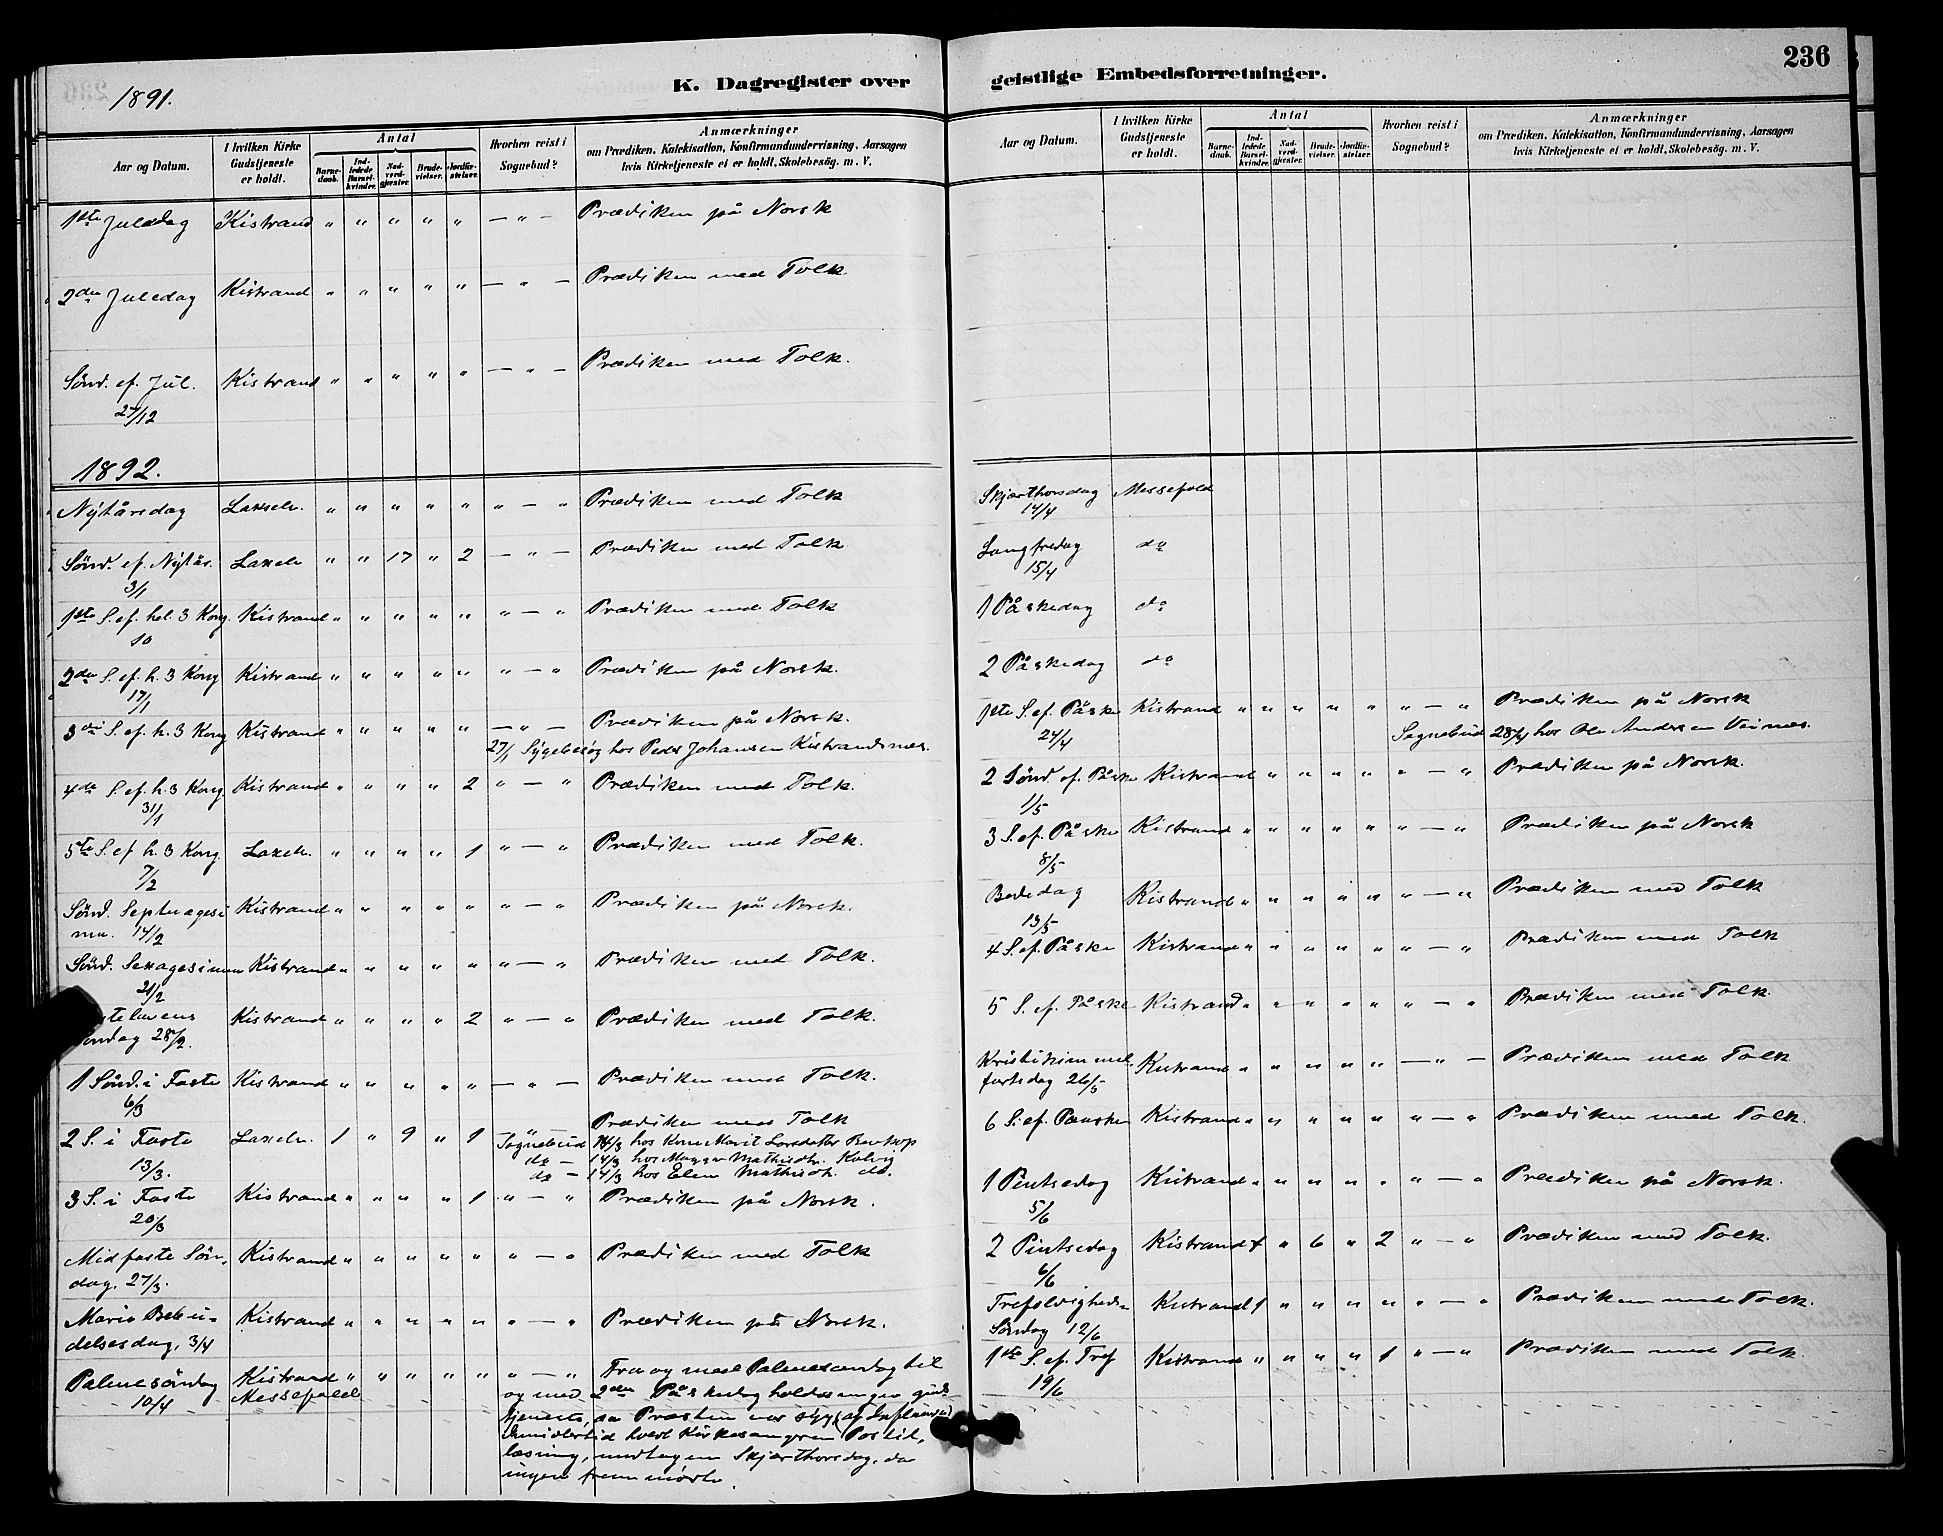 1891.
K. Dagregister over
Aar og Datum.
I hvilken Kirke Gudstjeneste er holdt.
Antal
Barnedaab.
Indledede Barselkvinder.
Nadverdgjester.
Brudevielser.
Jordfæstelser.
Hvorhen reist i Sognebud?
Anmærkninger
om Prædiken, Katekisation, Konfirmandundervisning, Aarsagen
hvis Kirketjeneste ei er holdt, Skolebesøg. m. V.
1ste Juledag Kistrand " " " " " — " — Prædiken på Norsk
2den Juledag Kistrand " " " " " — " — Prædiken med Tolk
Sönd. ef. Jul. Kistrand " " " " " — " — Prædiken med Tolk.
27/12
1892.
Nytårsdag Laxelv. " " " " " " — " Prædiken med Tolk
Sönd. ef. Nytår. Laxelv " " 17 " 2 — " — Prædiken med Tolk
3/1
1ste S. ef. hel. 3 Kong. Kistrand " " " " " " — " Prædiken med Tolk
10
2den S. ef. h. 3 Kong Kistrand " " " " " " — " Prædiken på Norsk.
17/1
3die S. ef. h. 3 Kong Kistrand " " " " " — " — Prædiken på Norsk.
27/1 Sygebesøg hos Peder Johansen Kistrandsnæs.
4de S. ef. h. 3 Kong Kistrand " " " " 2 " — " Prædiken med Tolk.
31/1
5te S. ef h. 3 Kong. Laxelv. " " " " 1 " — " Prædiken med Tolk.
7/2
Sönd. Septuagesi Kistrand " " " " " " — " Prædiken på Norsk.
ma. 14/2
Sönd. Sexagesima Kistrand " " " " " " — " Prædiken med Tolk.
21/2
Kistrand " " " " 2 " — " Prædiken med Tolk.
28/2.
1 Sönd. i Faste Kistrand " " " " " — " — Prædiken med Tolk.
6/3
2 S. i Faste Laxelv. 1 " 9 " 1 — " — Prædiken med Tolk
Sognebud 14/3 hos Kone Marit Larsdatter
13/3. do — 14/3 hos Mathisdtr. Kolvig
do — 14/3 hos Elen Mathisdt. do.
3 S. i Faste Kistrand " " " " 1 " — " Prædiken på Norsk.
20/3
Midfaste Sön, Kistrand " " " " " " — " Prædiken med Tolk
dag. 27/3.
Mariæ Bebu- Kistrand " " " " " " — " Prædiken på Norsk.
delsesdag, 3/4
Palmesöndag Kistrand " " " " " " — " Fra og med Palmesöndag til
10/4 Messefald og med 2den Påskedag holdes ingen guds-
tjeneste, da Præsten var syg (af Influenza)
Imidlertid hvert Kirkesangeren Postil,
læsning, undtagen Skjærthorsdag, da
ingen fremmødte.
geistlige Embedsforretninger.
236
Aar og Datum.
I hvilken Kirke Gudstjeneste er holdt.
Antal
Barnedaab.
Indledede Barselkvinder.
Nadverdgjester.
Brudevielser.
Jordfæstelser.
Hvorhen reist i Sognebud?
Anmærkninger
om Prædiken, Katekisation, Konfirmandundervisning, Aarsagen
hvis Kirketjeneste ei er holdt, Skolebesøg. m. V.
Skjærthorsdag Messefald
14/4
Langfredag do
15/4
1 Påskedag do
2 Påskedag do
1ste S. ef. Påske Kistrand " " " " " " — " Prædiken på Norsk
24/4 Sognebud 28/4 hos Ole Andersen Veines.
2 Sönd. ef. Påske Kistrand " " " " " " — " Prædiken på Norsk.
1/5
3 S. ef. Påske Kistrand " " " " " " — " Prædiken på Norsk
8/5
Bededag Kistrand " " " " " " — " Prædiken med Tolk
13/5
4 S. ef. Påske Kistrand " " " " " " — " Prædiken med Tolk
5 S. ef. Påske Kistrand " " " " " " — " Prædiken med Tolk.
Kristi himmel Kistrand " " " " " — " — Prædiken med Tolk
fartsdag 26/5
6 S. ef. Paasken Kistrand " " " " " " — " Prædiken med Tolk.
1 Pintsedag Kistrand " " " " " " — " Prædiken på Norsk.
5/6
2 Pintsedag Kistrand 1 " 6 " 2 " — " Prædiken med Tolk.
6/6
Trefoldigheds- Kistrand 1 " " " " " — " Prædiken med Tolk.
Söndag 12/6
1ste S. ef. Tref Kistrand " " " " 1 " — " Prædiken med Tolk.
19/6